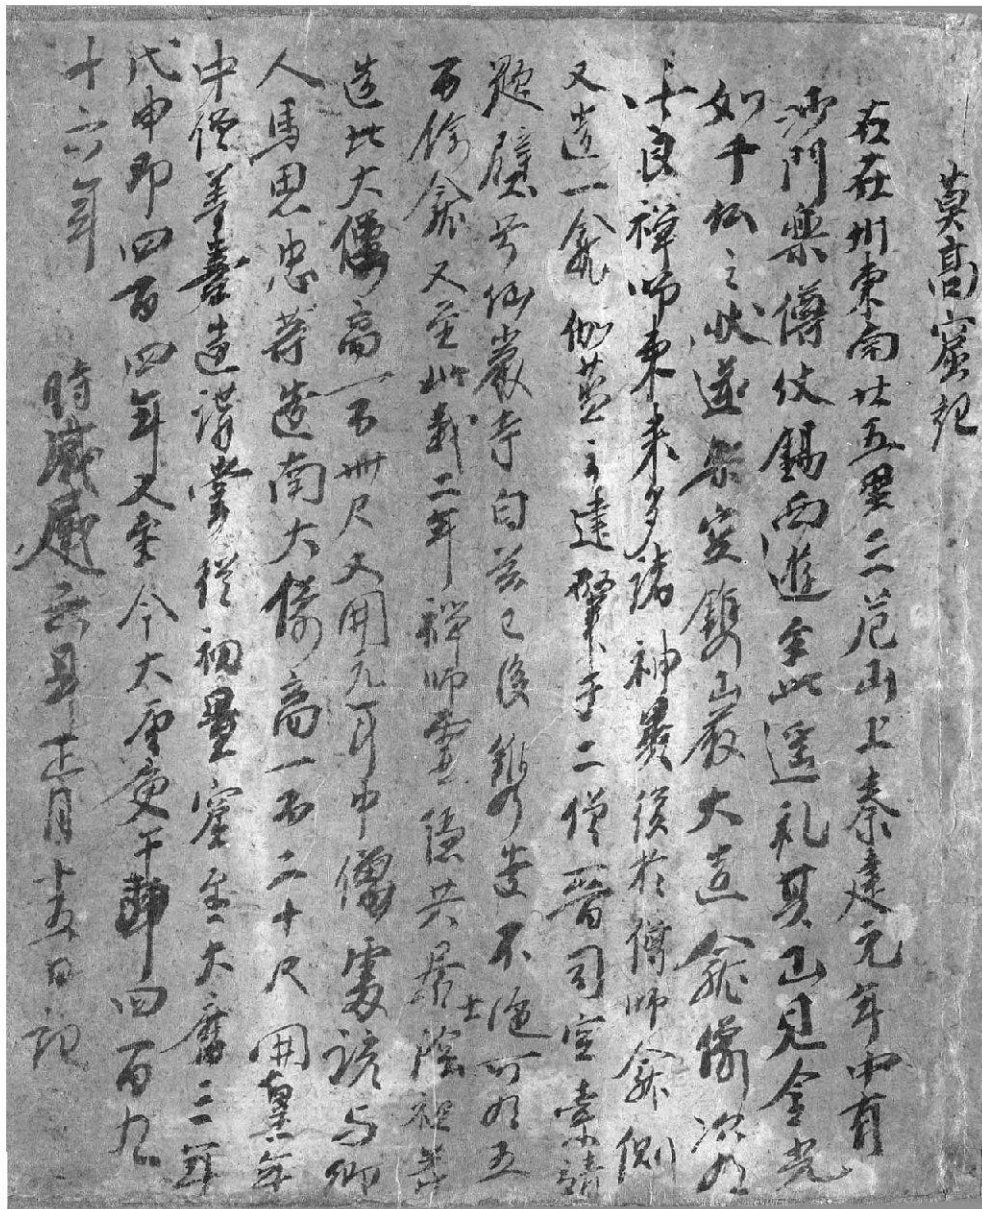 莫高窟記
右在州東南廿五里三危山上秦建元年中有
沙門樂僔仗錫西遊至此遥礼其山見金光
如千仏之狀遂架空鐫山巖大造龕像次有
法良禪師東来多諸神異復於僔師龕側
又造一龕伽藍之建肇于二僧晉司空索靖
題壁号仙巖寺自兹已後鐫造不絶可有五
百餘龕又至延載二年禪師靈隱共居士陰祖等
造北大像高一百卌尺又開元年中僧處諺与鄉
人馬思忠等造南大像高一百二十尺開皇年
中僧善喜造講堂從初置窟至大曆三年
戊申即四百四年又至今大唐庚午即四百九
十六年
時咸通六年正月十五日記